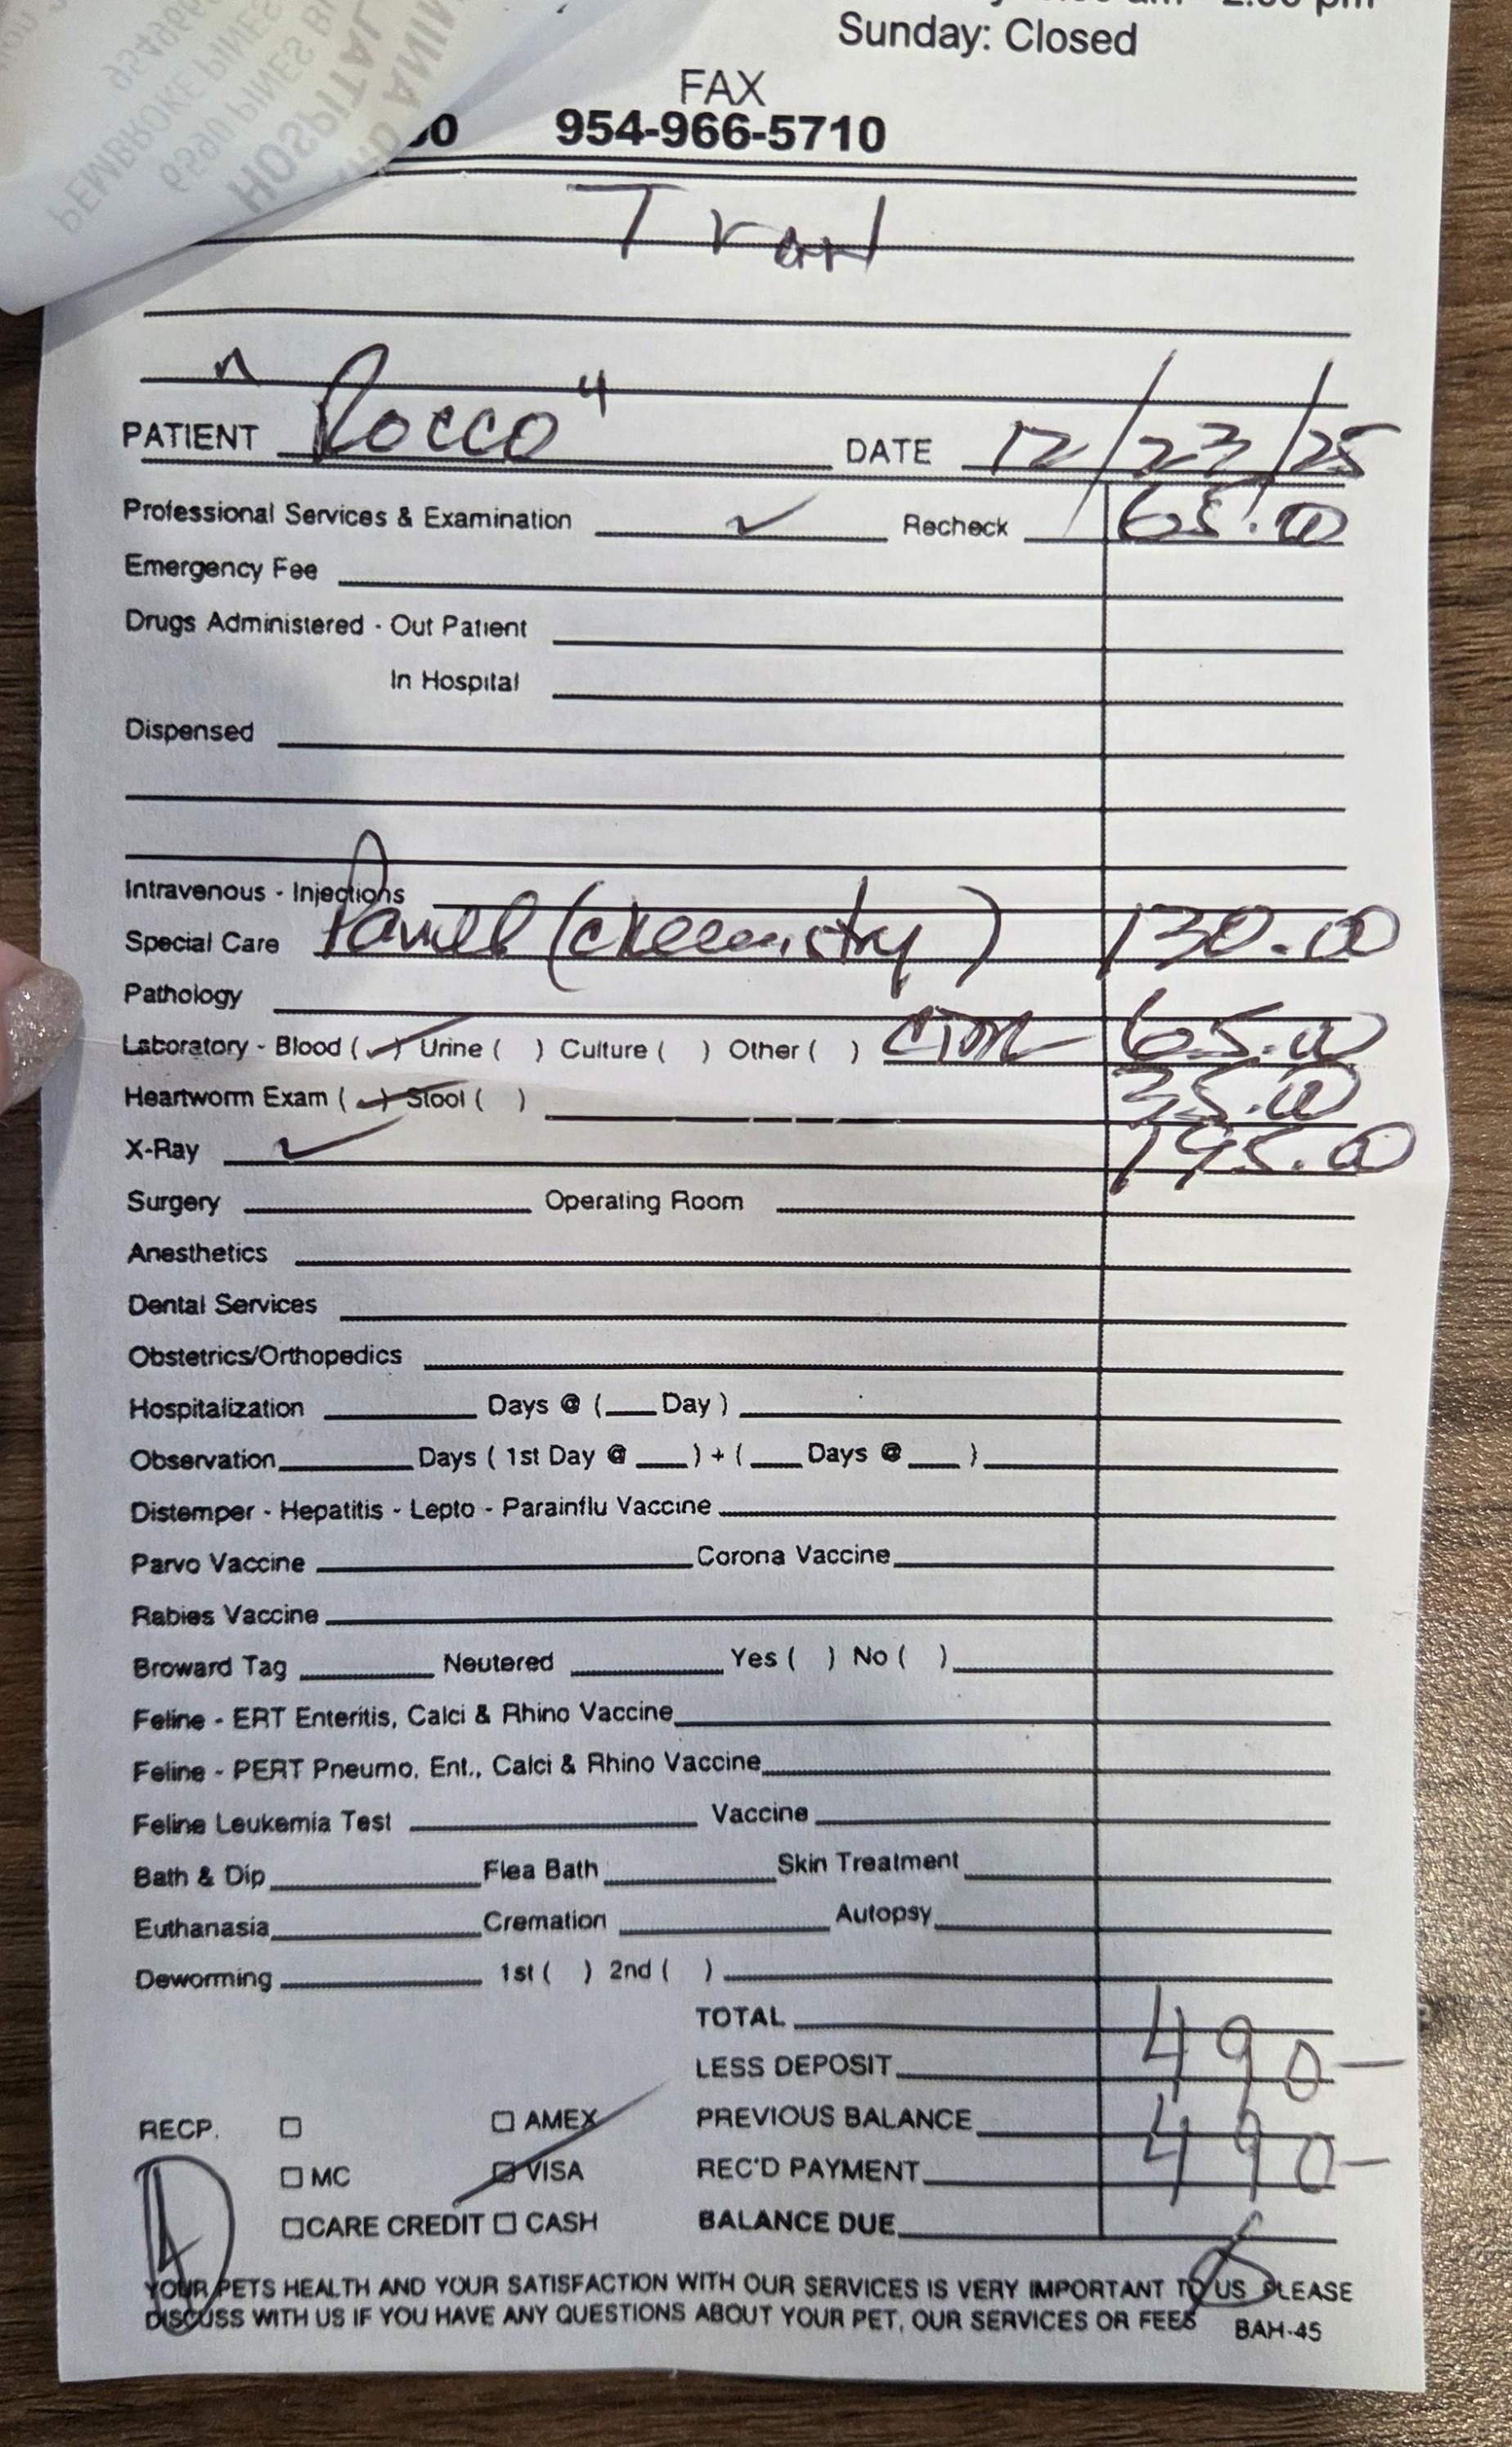 Sunday: Closed
FAX
954-966-5710
HOSPITAL
6590 PINES
PEMBROKE PINES
Tran
PATIENT "Rocco" DATE 12/23/25
Professional Services & Examination ✓ Recheck 65.00
Emergency Fee
Drugs Administered - Out Patient
In Hospital
Dispensed
Intravenous - Injections
Special Care Panel (chemistry) 130.00
Pathology
Laboratory - Blood (✓) Urine ( ) Culture ( ) Other ( ) 65.00
Heartworm Exam (✓) Stool ( ) 35.00
X-Ray ✓ 195.00
Surgery Operating Room
Anesthetics
Dental Services
Obstetrics/Orthopedics
Hospitalization Days @ (___ Day )
Observation Days ( 1st Day @ ___ ) + ( ___ Days @ ___ )
Distemper - Hepatitis - Lepto - Parainflu Vaccine
Parvo Vaccine Corona Vaccine
Rabies Vaccine
Broward Tag Neutered Yes ( ) No ( )
Feline - ERT Enteritis, Calci & Rhino Vaccine
Feline - PERT Pneumo. Ent., Calci & Rhino Vaccine
Feline Leukemia Test Vaccine
Bath & Dip Flea Bath Skin Treatment
Euthanasia Cremation Autopsy
Deworming 1st ( ) 2nd ( )
TOTAL 490-
LESS DEPOSIT
RECP. ☐ ☐ AMEX PREVIOUS BALANCE
☐ MC ☑ VISA REC'D PAYMENT 490-
☐ CARE CREDIT ☐ CASH BALANCE DUE Ø
YOUR PETS HEALTH AND YOUR SATISFACTION WITH OUR SERVICES IS VERY IMPORTANT TO US PLEASE
DISCUSS WITH US IF YOU HAVE ANY QUESTIONS ABOUT YOUR PET, OUR SERVICES OR FEES BAH-45